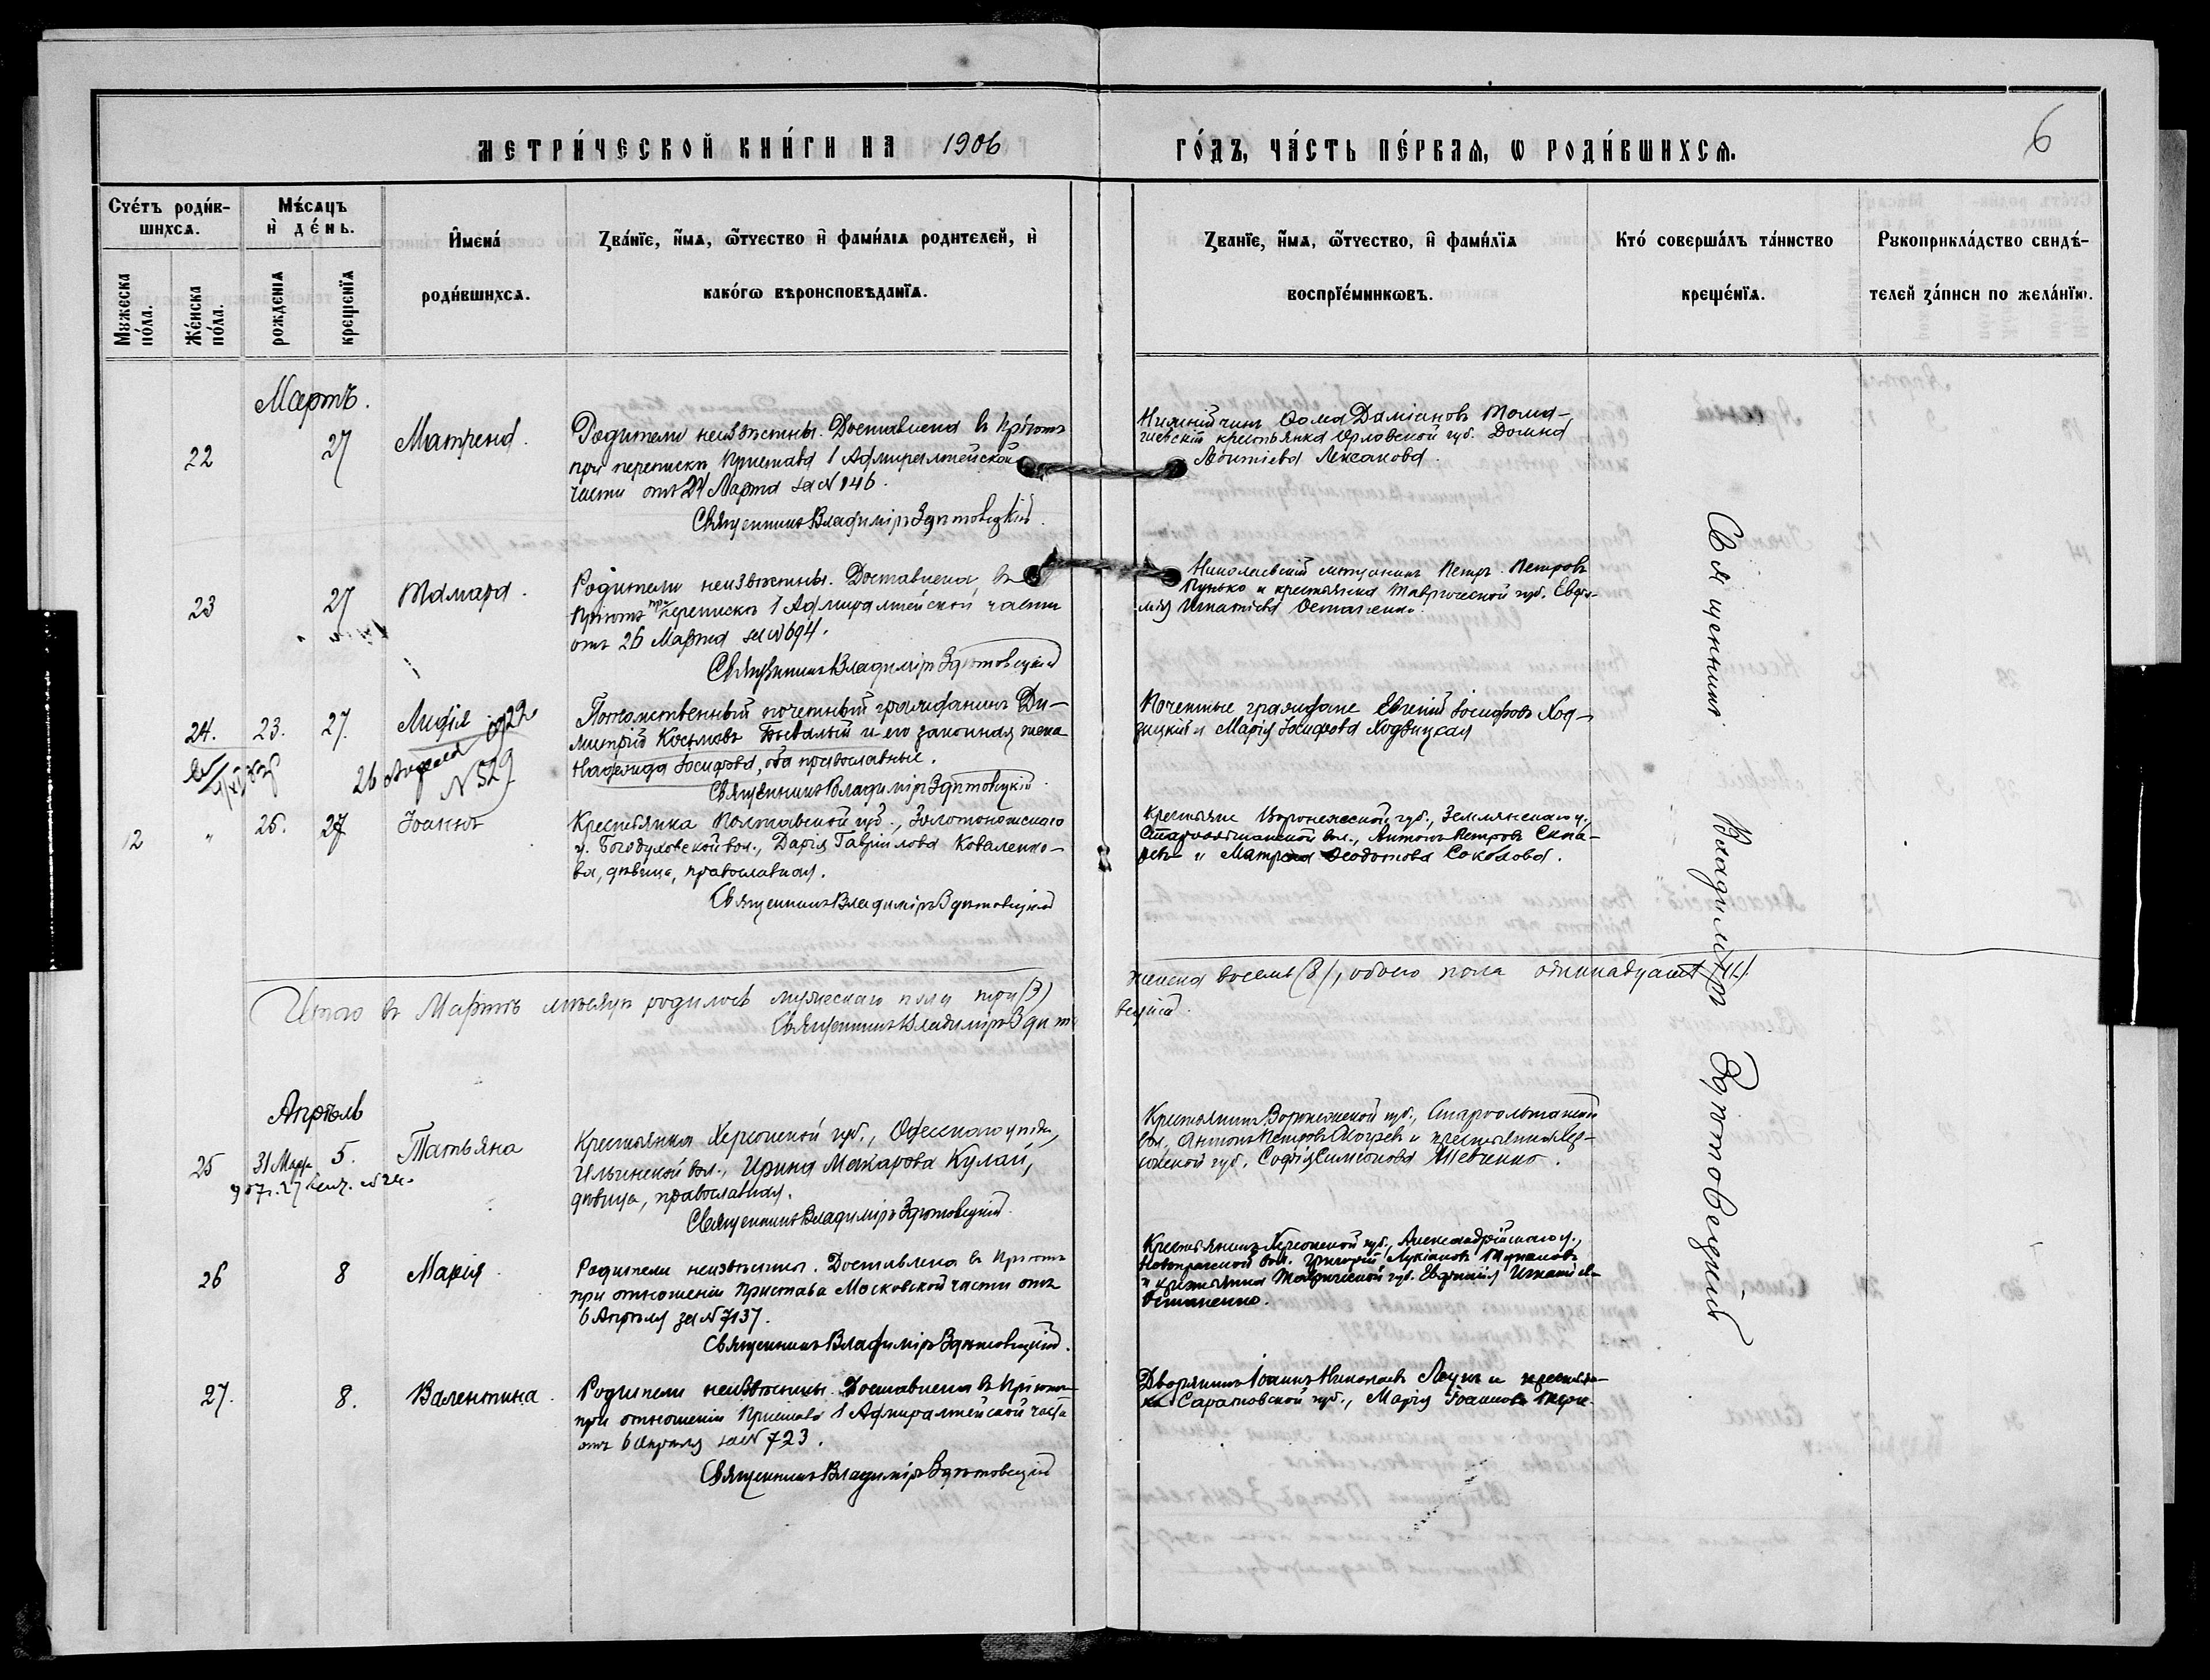 МЕТРИ́ЧЕСКОЙ КНИ́ГИ НА 1906 ГО́ДЪ, ЧА́СТЬ ПЕ́РВАЯ, Ѡ РОДИ́ВШИХСЯ.
6
Сче́тъ роди́в-
шихся.
Мѣ́сяцъ
и де́нь.
Имена́
роди́вшихся.
Зва́нїе, и҆́мя, ѻ҆́тчество и҆ фами́лїя родителей, и҆
како́гѡ вѣроисповѣданїя.
Званїе, и҆́мя, ѻ҆́тчество, и҆ фами́лїя
воспрїе́мниковъ.
Кто́ соверша́лъ та́инство
креще́нїя.
Рукоприкла́дство свидѣ́-
телей за́писи по жела́нїю.
Мужеска
по́ла.
Же́нска
по́ла.
рожденїя
крещенїя
Мартъ.
22
27
Матрена.
Родители неизвѣстны. Доставлена въ Пріютъ
при перепискѣ Пристава 1 Адмиралтейской
части отъ 24 Марта за N 146.
Священникъ Владиміръ Здѣтовецкій.
Нижній чинъ Ѳома Даміановъ Тома-
шевскій крестьянка Орловской губ. Домна
23
27
Тамара.
Родители неизвѣстны. Доставлена въ
Пріютъ при перепискѣ 1 Адмиралтейской части
отъ 26 Марта за N 694.
Священникъ Владиміръ Здѣтовецкій
Николаевскій мѣщанинъ Петръ Петровъ
Пунько и крестьянка Таврической губ. Евѳи-
мія Игнатіева Остапенко.
24.
23.
27.
Лидія
26 Апреля
N 529
Потомственный почетный гражданинъ Ди-
митрій Косьмовъ Бывалый и его законная жена
Надежда Іосифова, оба православные.
Священникъ Владиміръ Здѣтовецкій
Почетные граждане Евгеній Іосифовъ Ход-
зицкій и Марія Іосифова Ходзицкая
12
"
25.
27
Іоаннъ
Крестьянка Полтавской губ., Золотоношскаго
у. Богодуховской вол., Дарія Гавріилова Коваленко-
ва, дѣвица, православная.
Священникъ Владиміръ Здѣтовецкій
Крестьяне Воронежской губ., Землянскаго у.,
Староольшанской вол., Антонъ Петровъ
и Матрена Ѳеодотова Соколова.
Итого въ Мартѣ мѣсяцѣ родилось мужескаго пола три (3)
женска восемь (8), обоего пола одиннадцать (11).
Священникъ Владиміръ Здѣто
вецкій.
Апрѣль
25
31 Мар.
5.
Татьяна
Крестьянка Херсонской губ., Одесскаго уѣзда,
Ильинской вол., Ирина Макарова Кулай,
дѣвица, православная.
Священникъ Владиміръ Здѣтовецкій.
Крестьянинъ Воронежской губ., Староольшанской
вол. Антонъ Петровъ и крестьянка Хер-
сонской губ. Софія Симеонова Шевченко.
26
8
Марія
Родители неизвѣстны. Доставлена въ Пріютъ
при отношеніи Пристава Московской части отъ
6 Апрѣля за N 7137.
Священникъ Владиміръ Здѣтовецкій.
Крестьянинъ Херсонской губ., Александрійскаго у.,
Новопражской вол. Григорій Лукіановъ
и крестьянка Таврической губ. Евѳимія Игнатіева
Остапенко.
27.
8.
Валентина.
Родители неизвѣстны. Доставлена въ Пріютъ
при отношеніи Пристава 1 Адмиралтейской части
отъ 6 Апрѣля за N 723.
Священникъ Владиміръ Здѣтовецкій
Дворянинъ Іоаннъ Николаевъ и крестьян-
ка Саратовской губ., Марія Іоаннова
Священникъ Владиміръ Здѣтовецкій